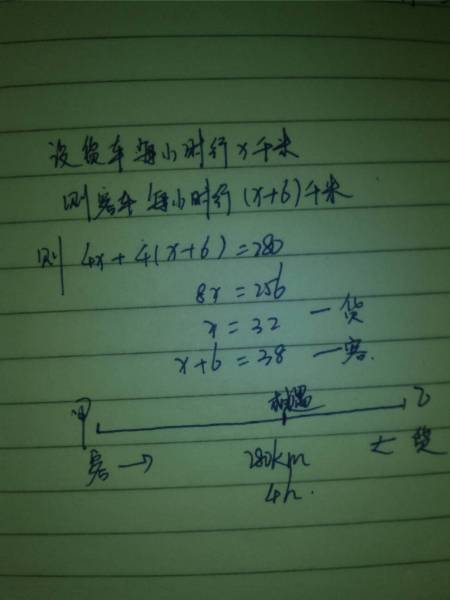 设货车每小时行x千米
则客车每小时行(x+6)千米
则 4x+4(x+6)=280
8x=256
x=32 —货
x+6=38 —客.
甲 相遇 乙
客→ 280km ←货
4h.